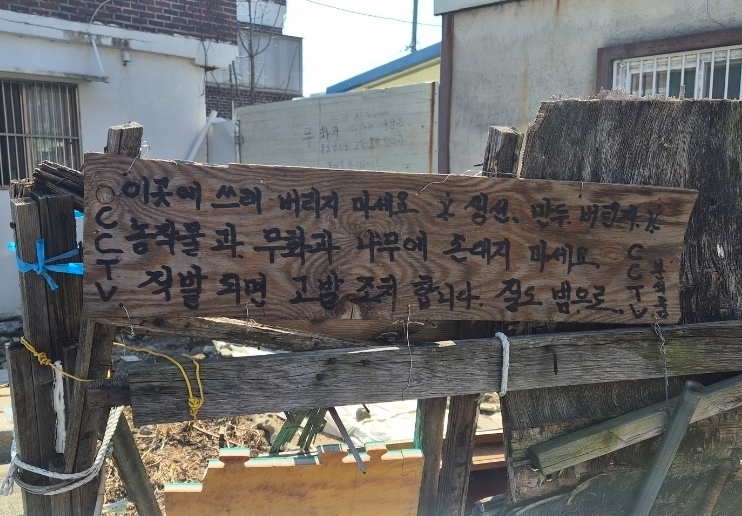 이곳에 쓰레 버리지 마세요 ※ 생선, 만두, 버린자,※
농작물과 무화과 나무에 손대지 마세요.
적발 되면 고발 조치 합니다. 절도 범으로,
○CCTV
CCTV